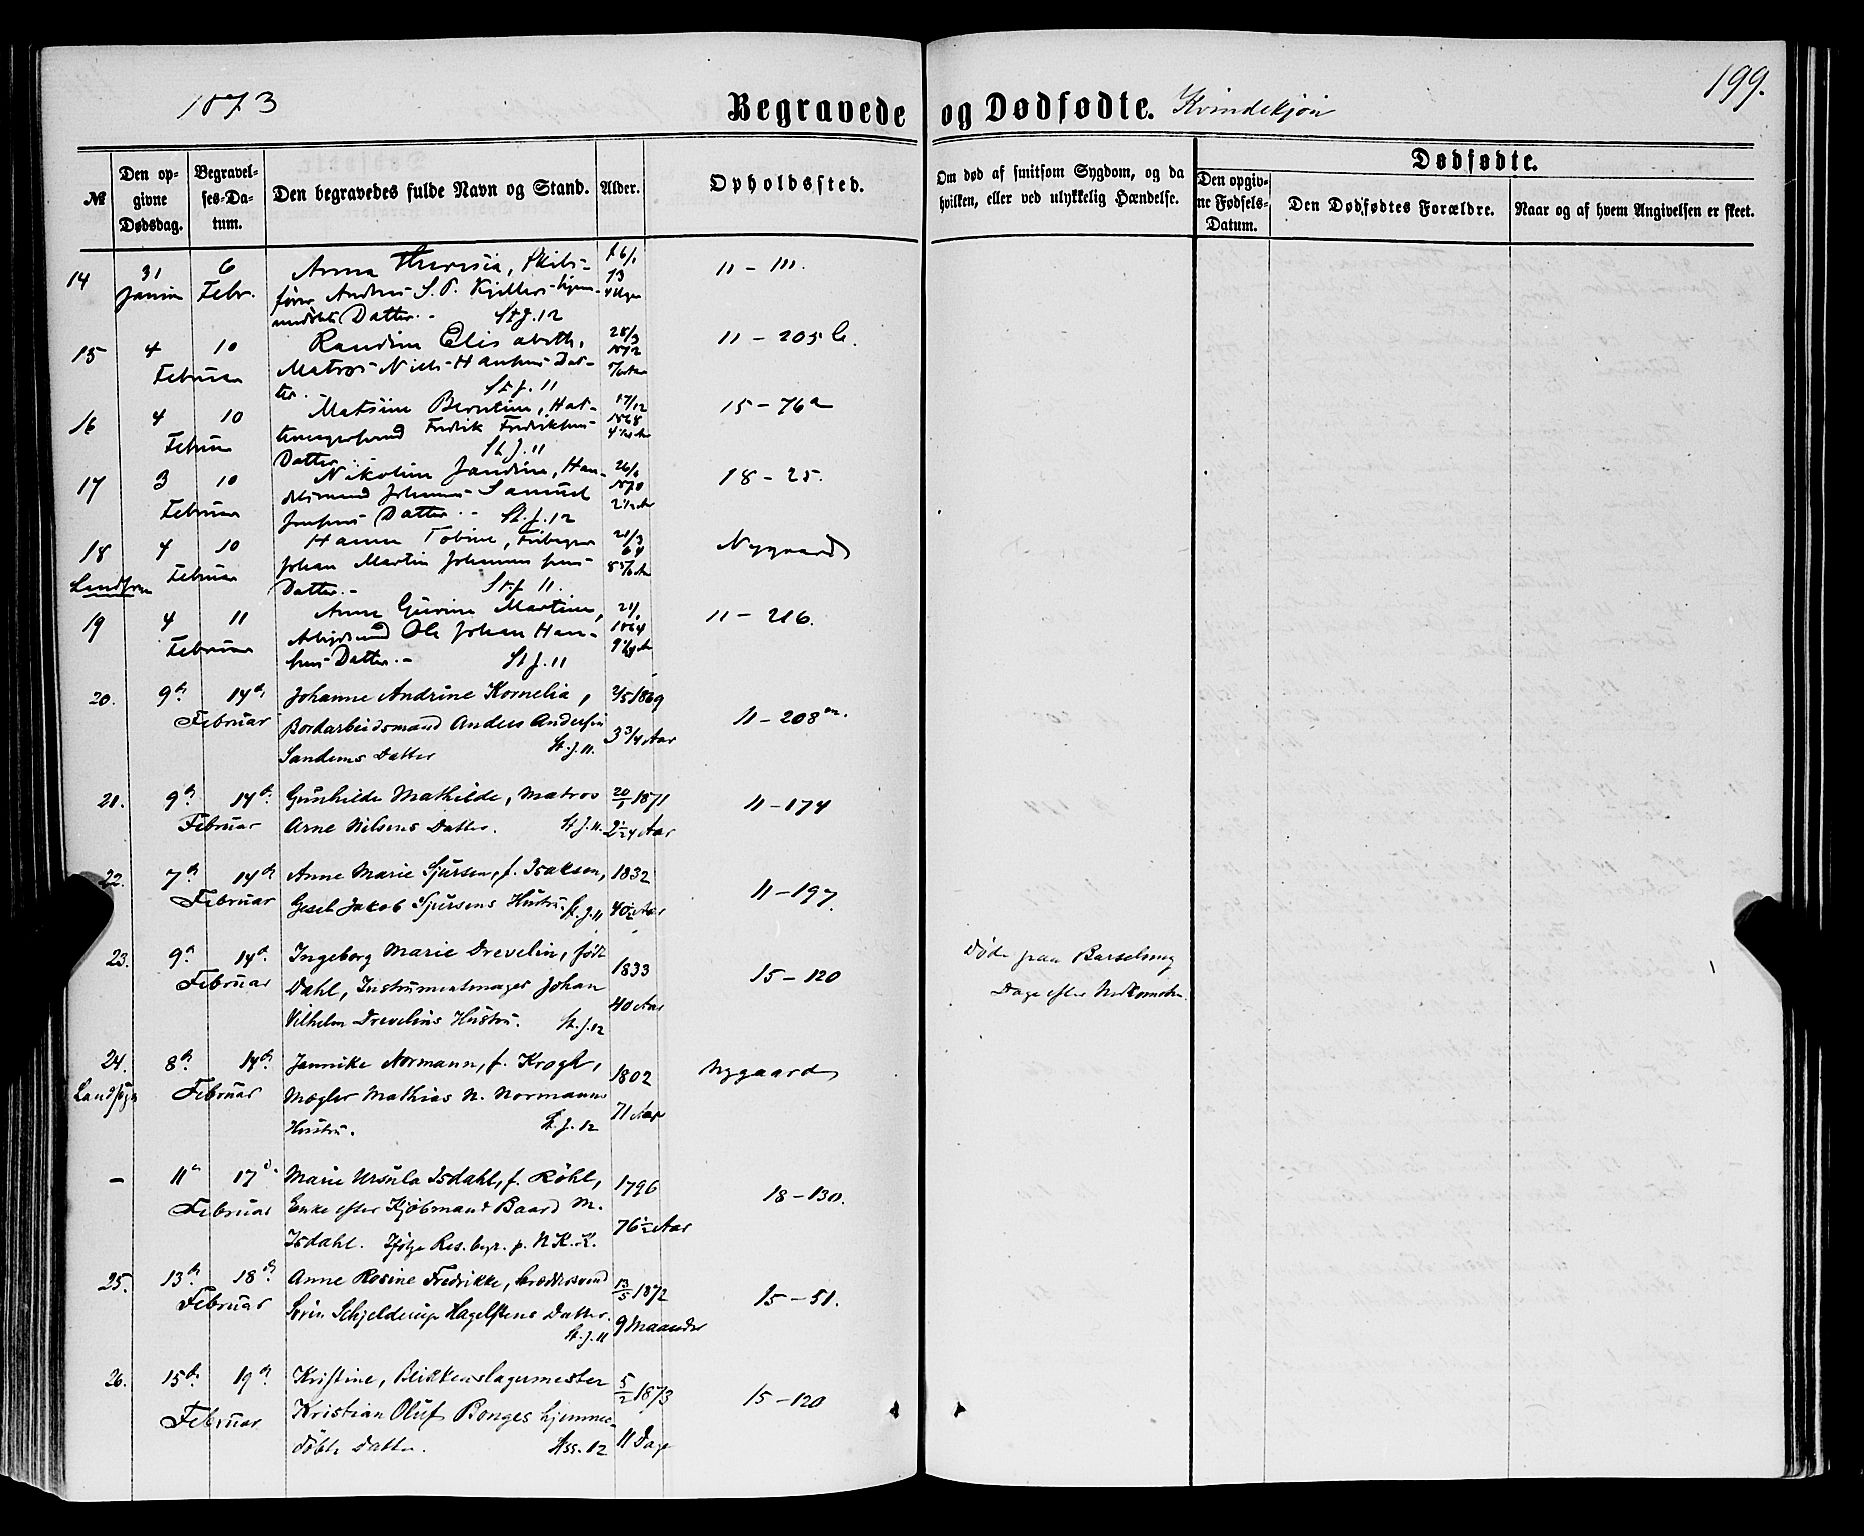 1873
Begravede og Dødfødte. Kvindekjøn
199.
№
Den opgivne Dødsdag.
Begravelses-Datum.
Den begravedes fulde Navn og Stand.
Alder.
Opholdssted.
Om død af smitsom Sygdom, og da hvilken, eller ved ulykkelig Hændelse.
Dødfødte.
Den opgivne Fødsels-Datum.
Den Dødfødtes Forældre.
Naar og af hvem Angivelsen er skeet.
14 31 6 Anna Theresia, 11 – 111.
Febr. Anders S. P.
Datter.- St J. 12
15 4 10 Randine Elisabeth, 28/3 11 – 205 b.
Februar Matros Niels Hansens Dat- 1872
ter. St J. 11
16 4 10 Matsine Berntine, 17/12 15 – 76a
Februar Fredrik Fredriksens 1868
Datter St J. 11
17 3 10 Nikoline Jandine, Han- 18 – 25.
Februar delsmand Johannes Samuel 1870
Datter.. St. J. 12
18 4 10 Hanna Tobine, 21/3 Nygaard
Februar Johan Martin Johannessens 64
Datter.- St J 11.
19 4 11 Anne Gurine Martine, 11 – 216.
Februar Arbeidsmand Ole Johan Han- 1864
sens Datter.- St J. 11
20. 9de 14de Johanne Andrine Kornelia, 2/5 1869
Februar Bordarbeidsmand Anders Andersen 3 3/4 Aar 11 – 208
Sandens Datter St. J. 11.
21. 9de 14de Gunhilde Mathilde, Matros 20/1 1871 11 – 174
Februar Arne Nilsens Datter. St J. 11. 2 1/24 Aar
22. 7de 14de Anne Marie Sjursen, f. Isaksen, 1832 11 – 197
Februar Gesel Jakob Sjursens Hustru. St. J. 11 40 1/2 Aar
23. 9de 14de Ingeborg Marie Drevelin, født 1833 15 – 120 Døde paa Barselseng
Februar Dahl, Instrumentmager Johan 40 Aar Dage efter Nedkomsten.
Vilhelm Drevelins Hustru. St. J. 12
24. 8de 14de Jannike Normann, f. Krogh, 1802 Nygaard
Landsogn Februar Mægler Mathias N. Normanns 71 Aar
Hustru. St. J. 12
– 11te 17de Marie Ursula Isdahl, f. Röhl, 1796 18 – 130.
Februar Enke efter Kjøbmand Baard M. 76 1/2 Aar
Isdahl. Ifølge Res. begr. p. N. K. K.
25. 13de 18de Anne Rosine Fredrikke, Skræddersvend 13/5 1872 15 – 51.
Februar Sørin Schjelderup Hagelstens Datter. 9 Maaneder
St. J. 11
26. 15de 19de Kristine, Blikkenslagermester 5/2 1873 15 – 120
Februar Kristian Oluf Bonges hjemme-
døbte Datter. Ass. 12 11 Dage